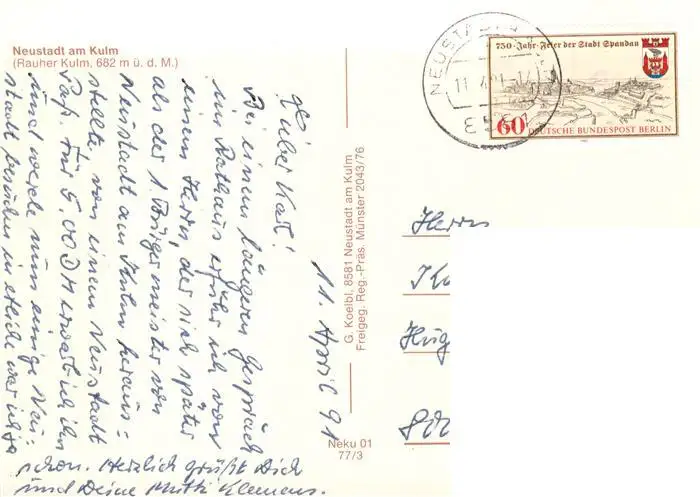 Neustadt am Kulm
(Rauher Kulm, 682 m ü. d. M.)
11. April 91
Lieber Karl!
Bei einem längeren Gespräch
im Rathaus erfuhr ich von
einem Herrn, der sich später
als der 1. Bürgermeister von
Neustadt am Kulm heraus=
stellte von einem Neustadt
Pap. Für 5,00 DM erwarb ich ihn
und werde nun einige Neu=
stadt besuchen in etliche war ich ja
schon. Herzlich grüßt Dich
und Deine Mutti Klemens.
G. Koelbl, 8581 Neustadt am Kulm
Freigeg. Reg.-Präs. Münster 2043/76
Neku 01
77/3
NEUSTADT
11.4.91-14
750-Jahr-Feier der Stadt Spandau
60 DEUTSCHE BUNDESPOST BERLIN
Herrn
Ka
Hug